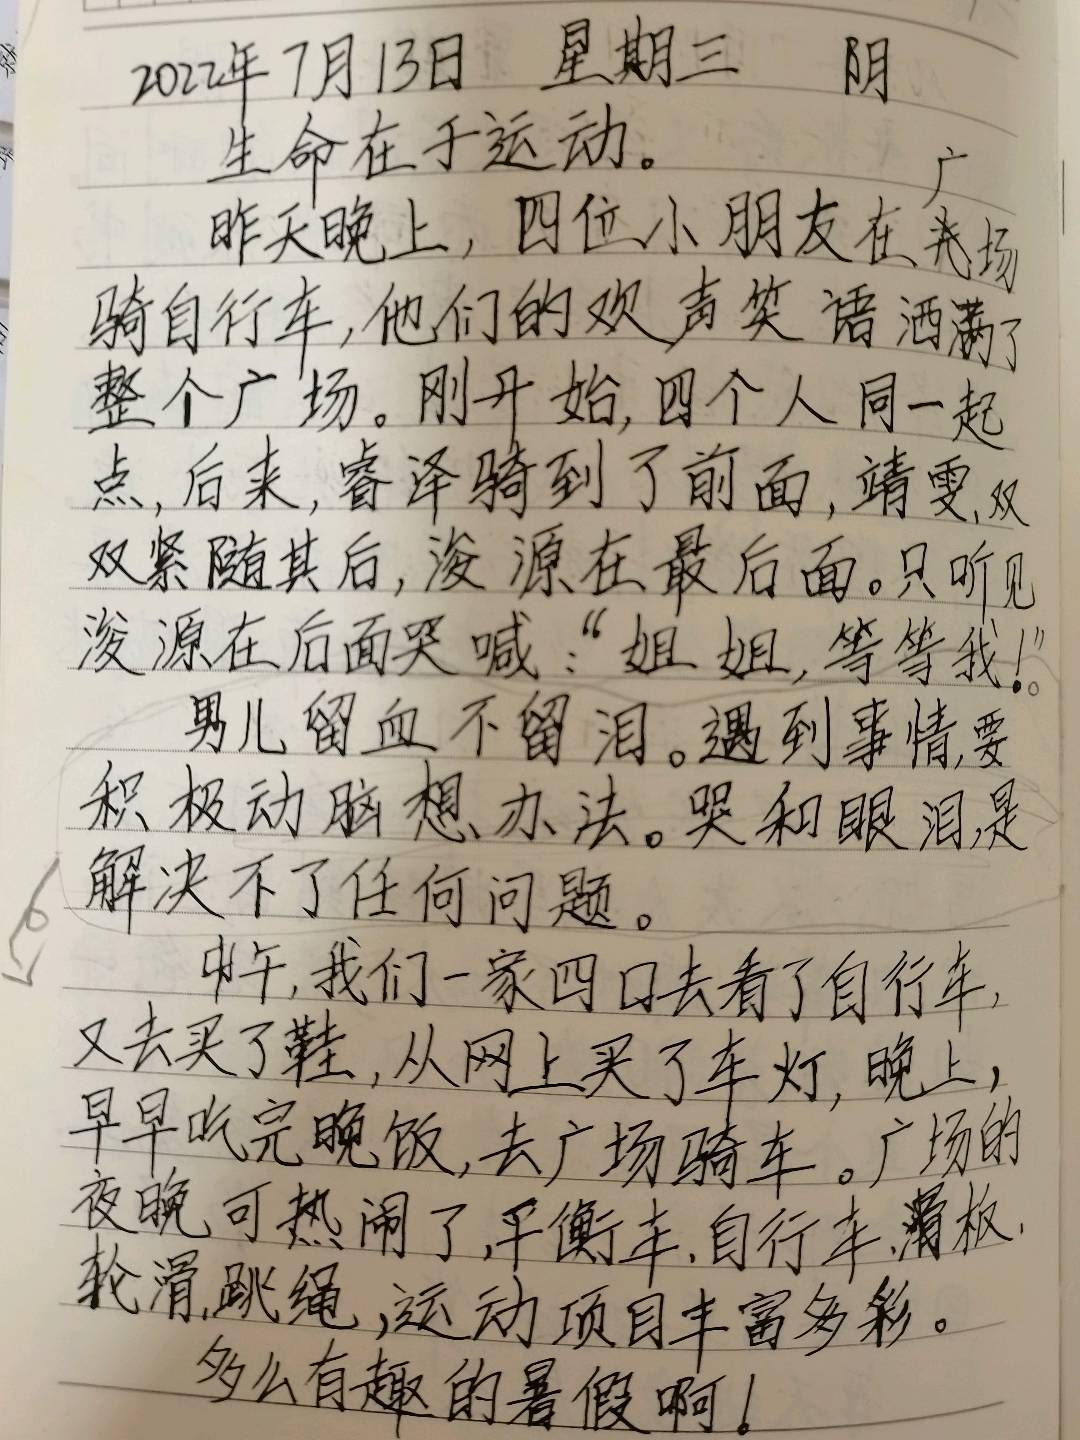 2022年7月13日 星期三 阴
生命在于运动。
昨天晚上，四位小朋友在广场
骑自行车，他们的欢声笑语洒满了
整个广场。刚开始，四个人同一起
点，后来，睿泽骑到了前面，靖雯、双
双紧随其后，浚源在最后面。只听见
浚源在后面哭喊：“姐姐，等等我！”。
男儿留血不留泪。遇到事情，要
积极动脑想办法。哭和眼泪，是
解决不了任何问题。
中午，我们一家四口去看了自行车，
又去买了鞋，从网上买了车灯，晚上，
早早吃完晚饭，去广场骑车。广场的
夜晚可热闹了，平衡车、自行车、滑板、
轮滑、跳绳，运动项目丰富多彩。
多么有趣的暑假啊！